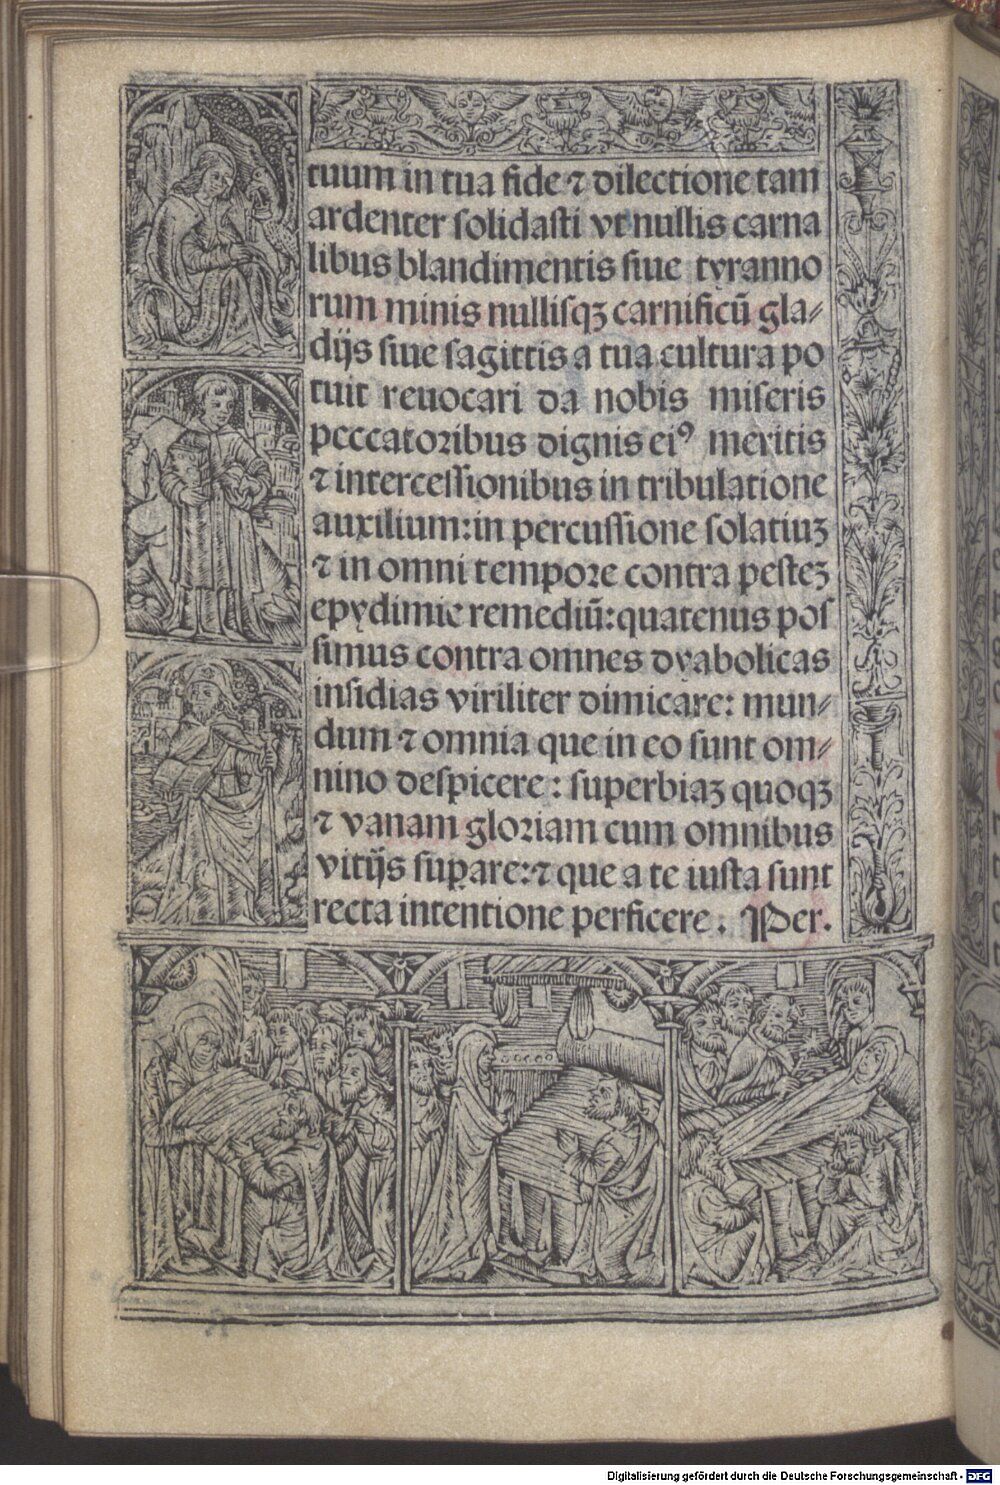 tuum in tua fide ⁊ dilectione tam
ardenter ſolidaſti vt nullis carna
libus blandimentis ſiue tyranno
rum minis nulliſqꝫ carnificū gla⸗
dijs ſiue ſagittis a tua cultura po
tuit reuocari da nobis miſeris
peccatoꝛibus dignis eiꝰ meritis
⁊ interceſſionibus in tribulatione
auxilium: in percuſſione ſolatiuꝫ
⁊ in omni tempoꝛe contra peſteꝫ
epydimie remediū: quatenus poſ
ſimus contra omnes dyabolicas
inſidias viriliter dimicare: mun⸗
dum ⁊ omnia que in eo ſunt om⸗
nino deſpicere: ſuperbiaꝫ quoqꝫ
⁊ vanam gloꝛiam cum omnibus
vitijs ſuꝑare: ⁊ que a te iuſta ſunt
recta intentione perficere. Per.
Digitalisierung gefördert durch die Deutsche Forschungsgemeinschaft - DFG